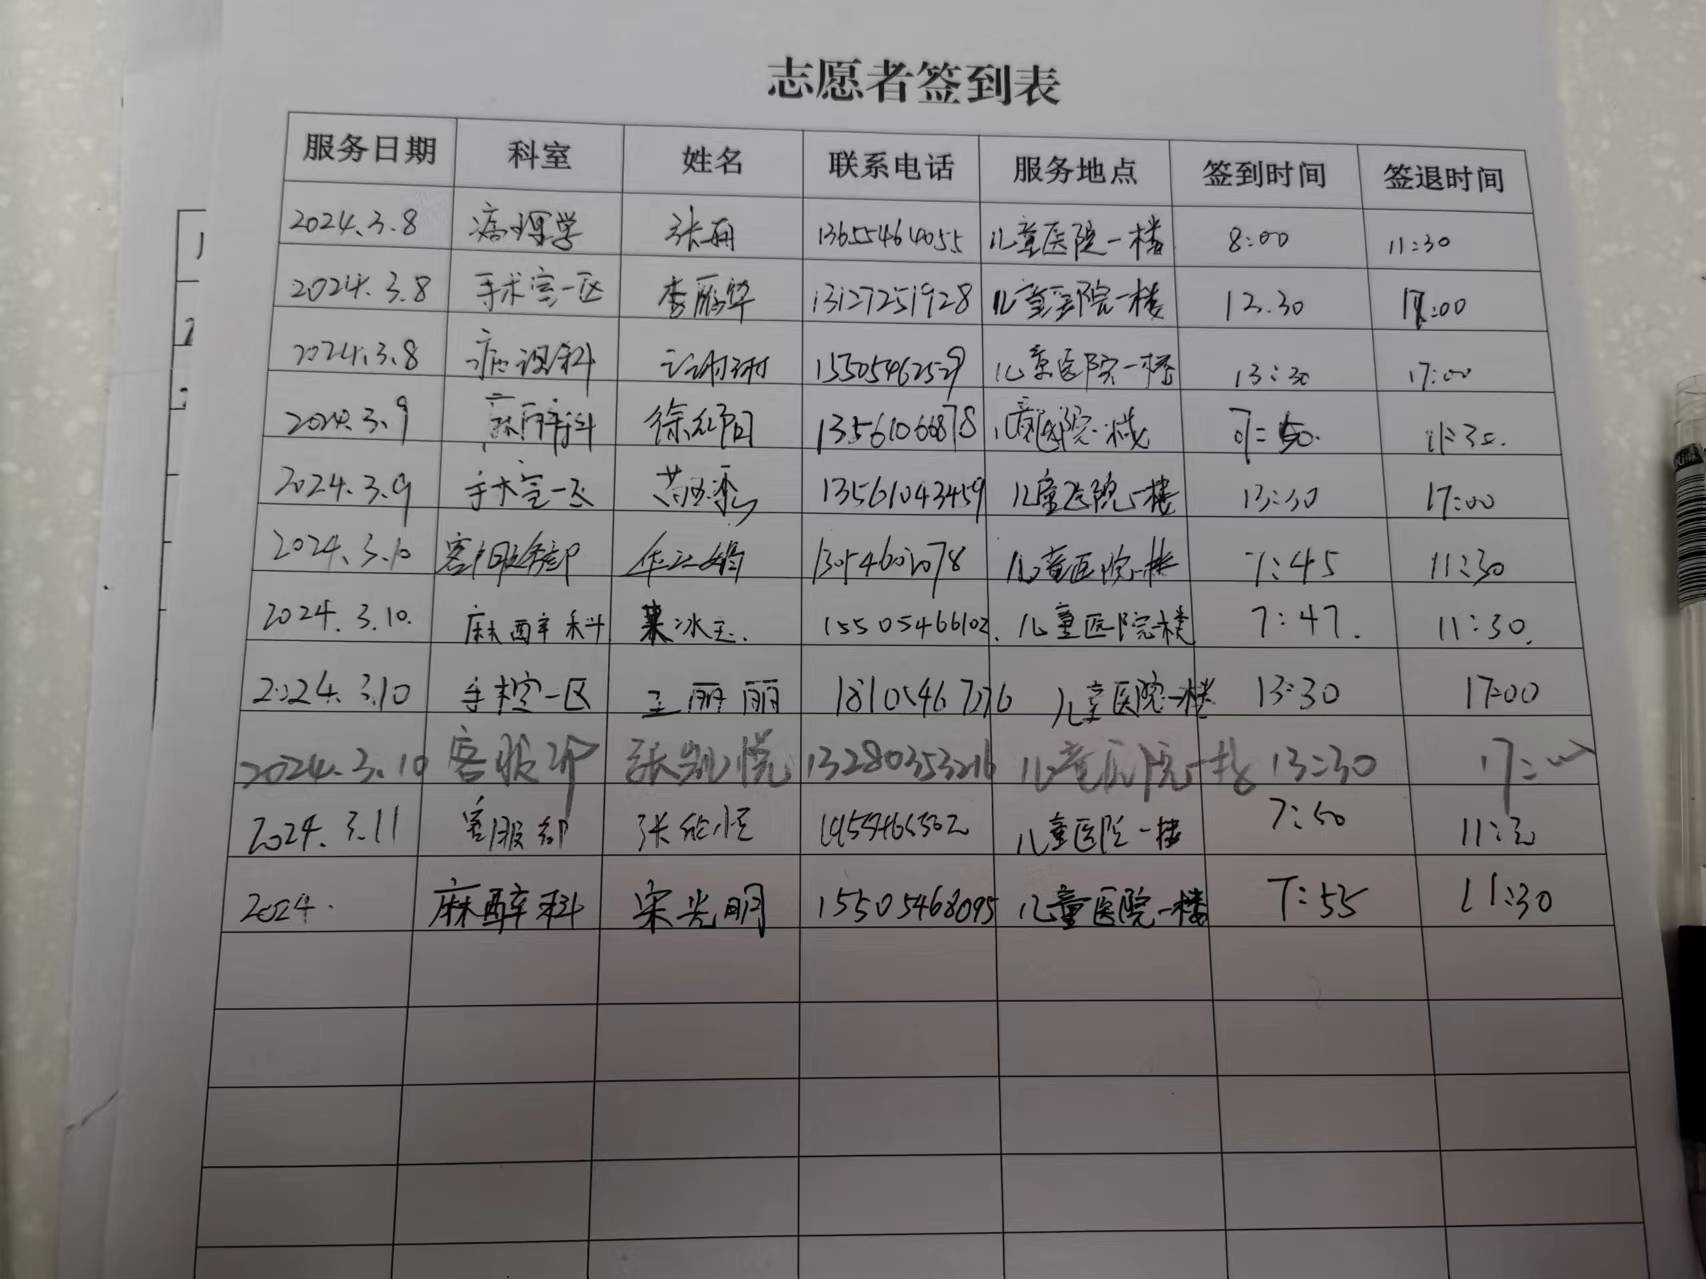 志愿者签到表
服务日期 科室 姓名 联系电话 服务地点 签到时间 签退时间
2024.3.8 病理学 张丽 13655464055 儿童医院一楼 8:00 11:30
2024.3.8 手术室一区 李丽华 13127251928 儿童医院一楼 12.30 17:00
2024.3.8 病理科 15505462529 儿童医院一楼 13:30 17:00
2024.3.9 麻醉科 徐红阳 13561066878 儿童医院一楼 7:50. 11:30.
2024.3.9 手术室一区 13561043459 儿童医院一楼 13:30 17:00
2024.3.10 客服部 儿童医院一楼 7:45 11:30
2024.3.10. 麻醉科 冰玉. 15505466102. 儿童医院一楼 7:47. 11:30.
2024.3.10 手术室一区 王丽丽 18105467276 儿童医院一楼 13:30 17:00
2024.3.10 客服部 张凯悦 13280353216 儿童医院一楼 13:30 17:00
2024.3.11 客服部 儿童医院一楼 7:50 11:30
2024. 麻醉科 宋光明 15505468095 儿童医院一楼 7:55 11:30